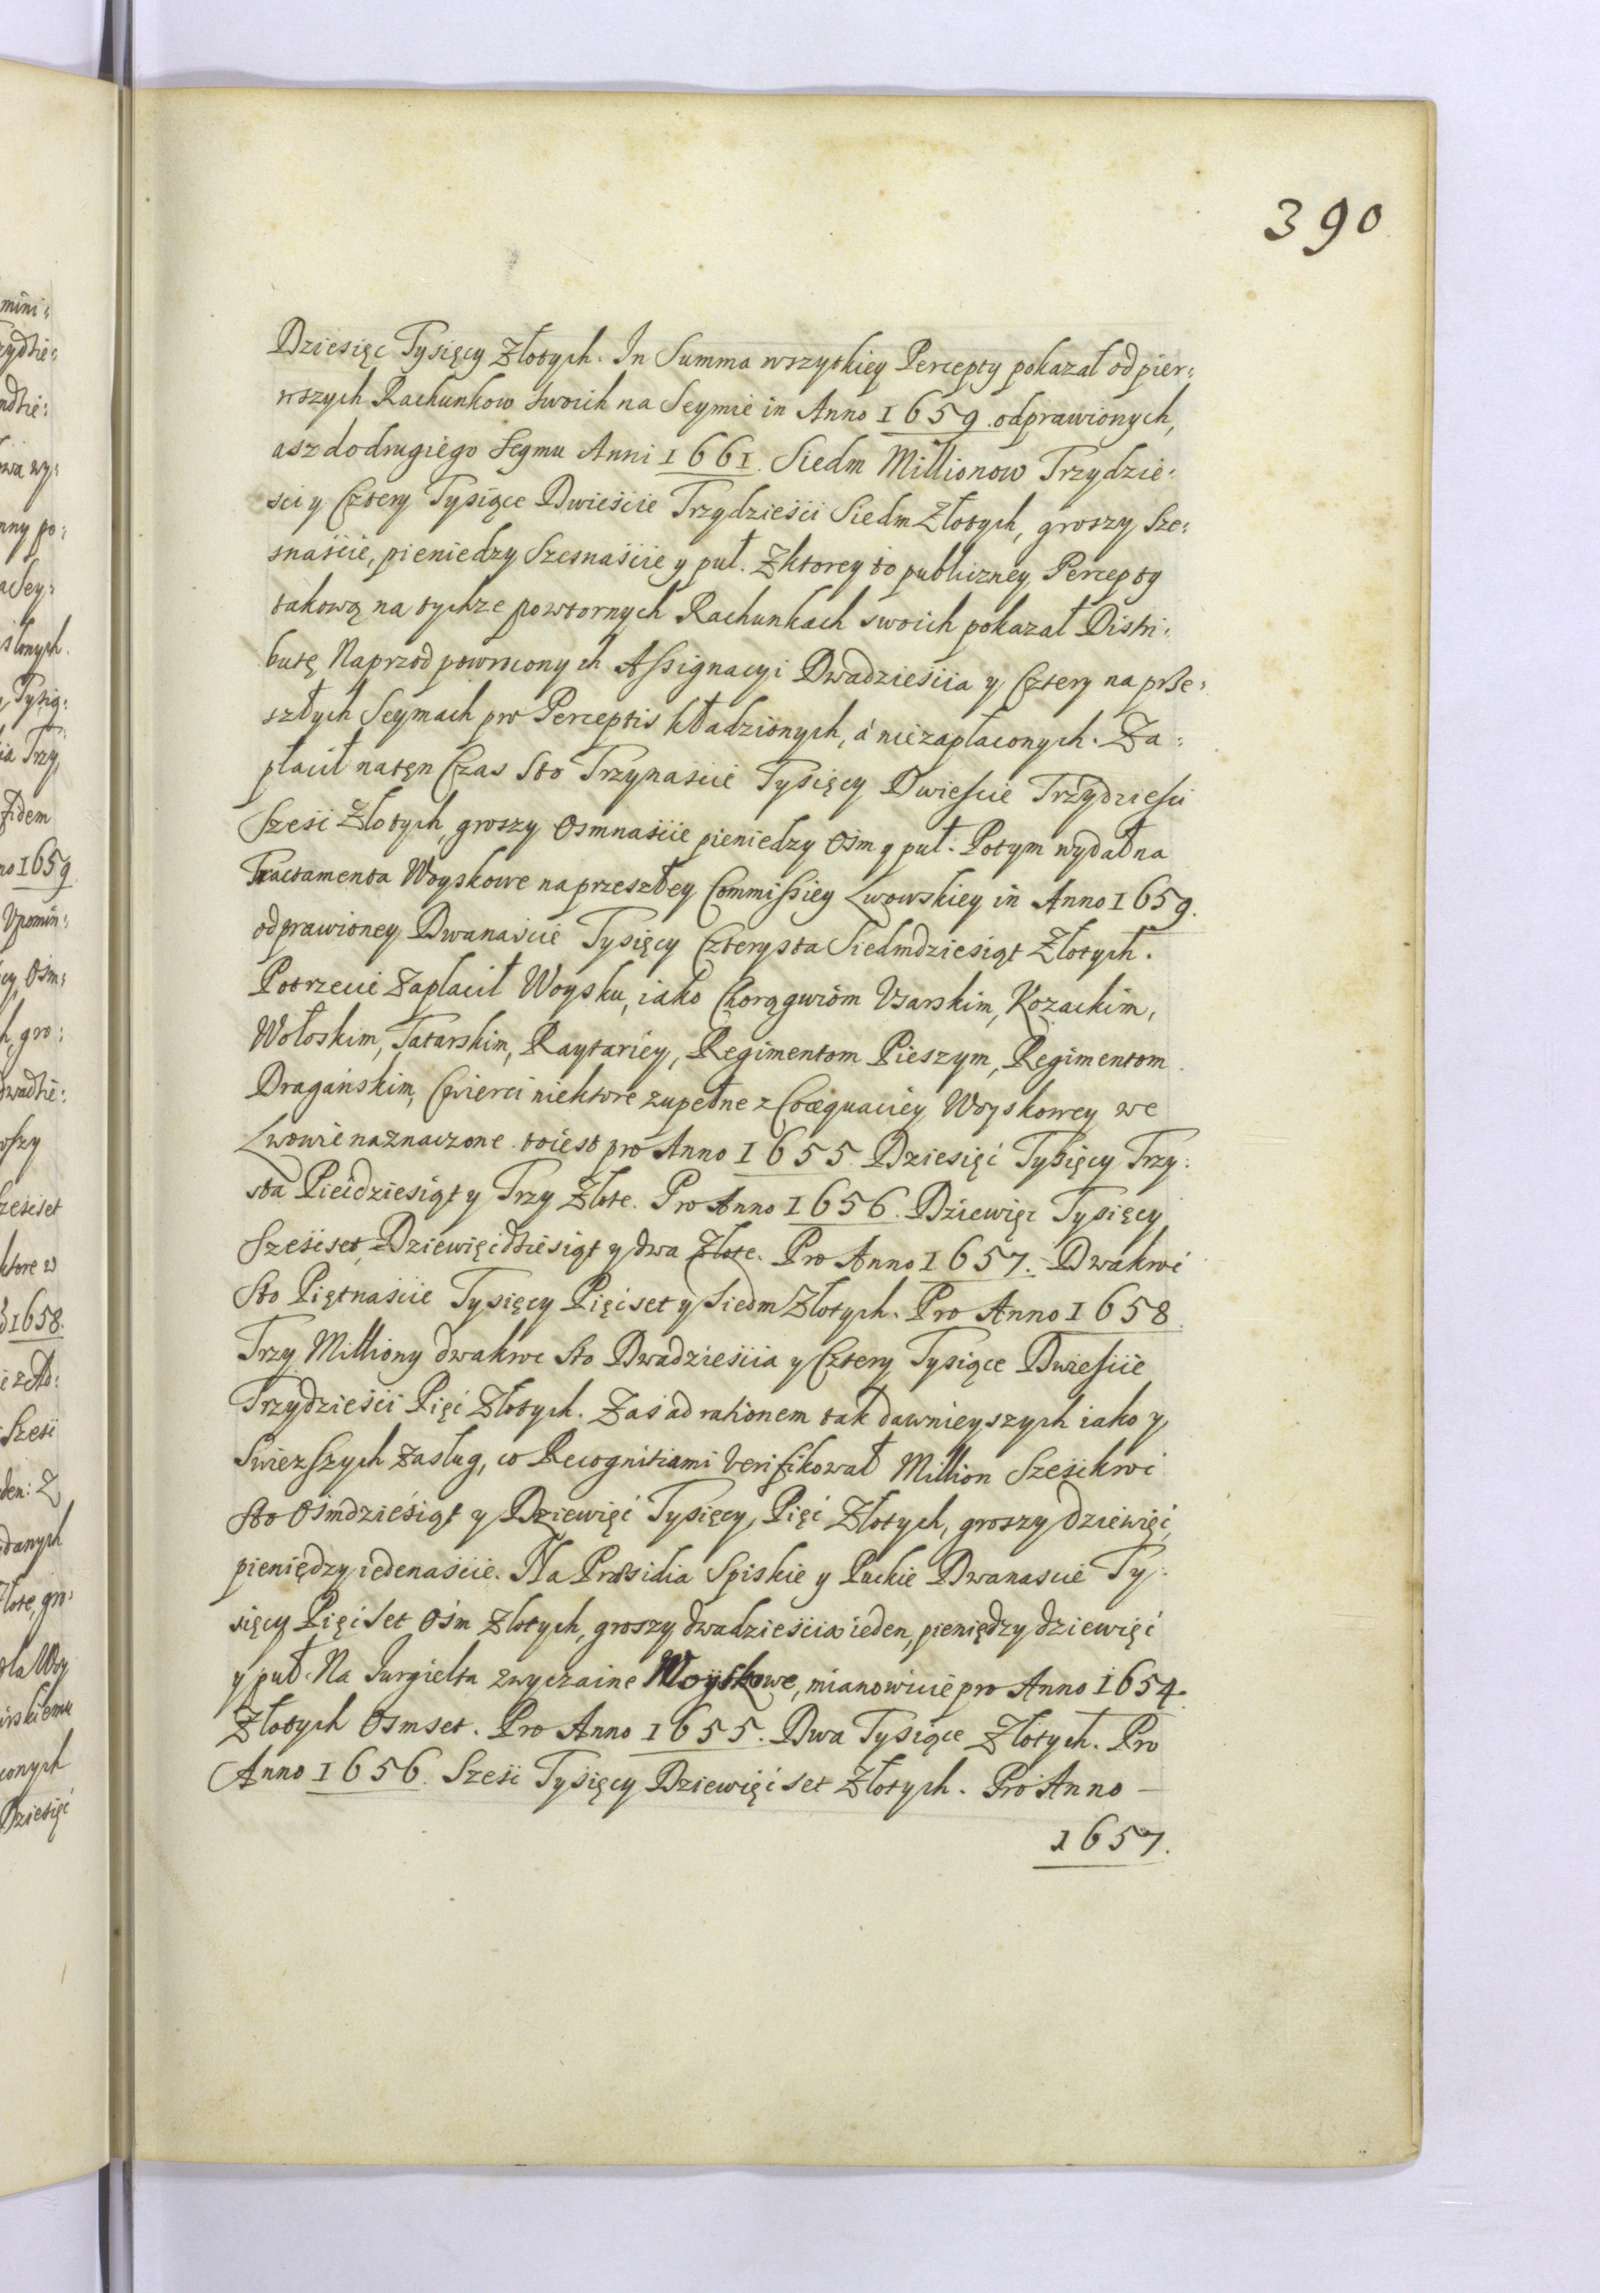 390
Dziesięc Tysięcy Złotych. In Summa wszytkiey Percepty pokazał od pier:
wszych Rachunkow swoich na Seymie in Anno 1659. odprawionych,
asz do drugiego Seymu Anni 1661. Siedm Millionow Trzydzie:
sci y Cztery Tysiące Dwieście Trzydzieści Siedm Złotych, groszy Sze:
snaście, pieniedzy Szesnaście y puł. Z ktorey to publiczney Percepty
takową na tychze powtornych Rachunkach swoich pokazał Distri:
butę Naprzod powroconych Assignacyi Dwadzieścia y Cztery na prze:
szłych Seymach pro Perceptis kładzionych, á niezapłaconych. Za:
płacił na tęn Czas Sto Trzynaście Tysięcy Dwiescie Trzydziesci
Sześć Złotych, groszy Osmnaście pieniedzy Ośm y puł. Potym wydał na
Tractamenta Woyskowe na przeszłey Commissiey Lwowskiey in Anno 1659.
odprawioney Dwanaście Tysięcy Czterysta Siedmdziesiąt Złotych.
Potrzecie Zapłacił Woysku, iako Chorągwiom Usarskim, Kozackim,
Wołoskim, Tatarskim, Raytariey, Regimentom Pieszym, Regimentom
Dragańskim, Cwierci niektore zupełne z Coæquaciey Woyskowey we
Lwowie naznaczone to iest pro Anno 1655. Dziesięć Tysięcy Trzy:
sta Piećdziesiąt y Trzy Złote. Pro Anno 1656. Dziewięc Tysięcy
Sześćset, Dziewięćdziesiąt y dwa Złote. Pro Anno 1657. Dwakroć
Sto Piętnaście Tysięcy Pięćset y Siedm Złotych. Pro Anno 1658.
Trzy Milliony dwakroc Sto Dwadzieścia y Cztery Tysiące Dwieście
Trzydzieści Pięć Złotych. Zaś ad rationem tak dawnieyszych iako y
Swiezszych Zasług, co Recognitiami Verifikował Million Sześćkroć
Sto Ośmdziesiąt y Dziewięć Tysięcy, Pięć Złotych, groszy dziewięć,
pieniędzy iedenaście. Na Præsidia Spiskie y Puckie Dwanaście Ty:
sięcy Pięćset Ośm Złotych, groszy dwadzieścia ieden, pieniędzy dziewięć
y puł. Na Iurgielta zwyczaine Woyskowe, mianowicie pro Anno 1654.
Złotych Osmset. Pro Anno 1655. Dwa Tysiące Złotych. Pro
Anno 1656. Sześć Tysięcy Dziewięćset Złotych. Pro Anno —
1657.